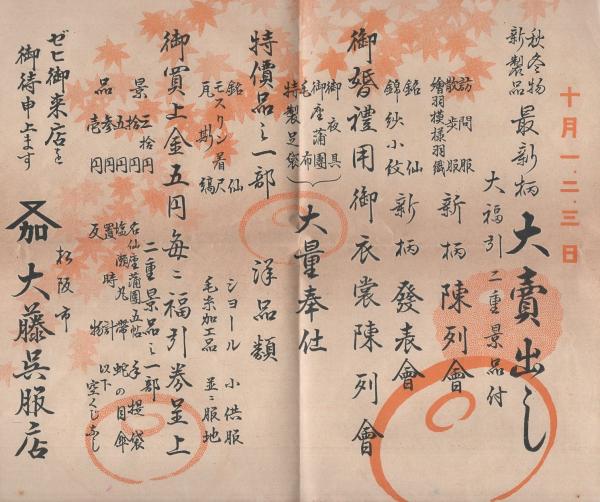 十月一・二・三日
秋冬物
新製品
最新柄
大賣出し
大福引二重景品付
訪問服
散歩服
繪羽模様羽織
新柄陳列會
銘仙
錦紗小紋
新柄發表會
御婚禮用御衣裳陳列會
御夜具
御座蒲團
毛布
特製足袋
大量奉仕
特價品之一部
洋品類
銘仙
モスリン着尺
瓦斯縞
ショール 小供服
毛糸加工品 並ニ服地
御買上金五円毎ニ福引券呈上
景品
三拾円
拾円
五円
参円
壱円
二重景品之一部
名仙座蒲團五帖 手提袋
塩瀬丸帯 蛇の目傘
置時計 以下
反物 空くじなし
ゼヒ御来店を
御待申上ます
松阪市
加 大藤呉服店